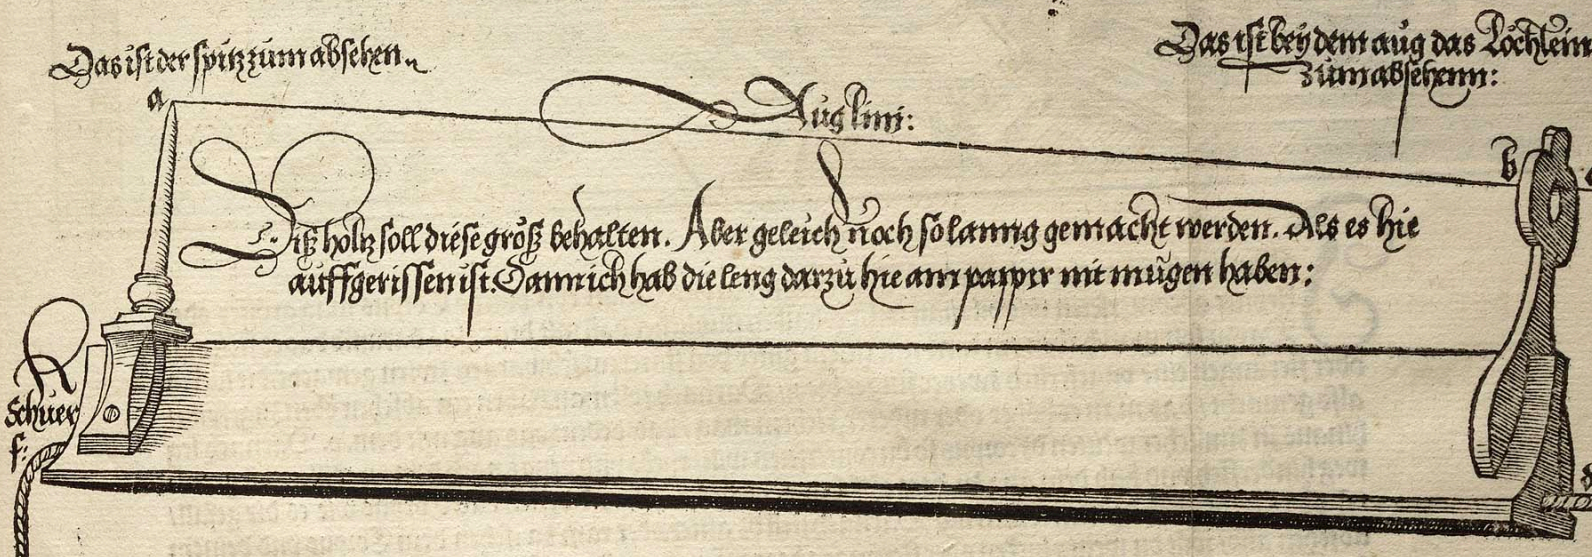 Das ist der spitz zum absehen.
Das ist bey dem aug das Löchlein
zum absehenn:
a
Aug lini:
b
Diß holtz soll diese größ behalten. Aber geleich noch so lanng gemacht werden. Als es hie
auffgerissen ist. Dann ich hab die leng darzu hie am pappir nit mügen haben:
Schuer
f:
d